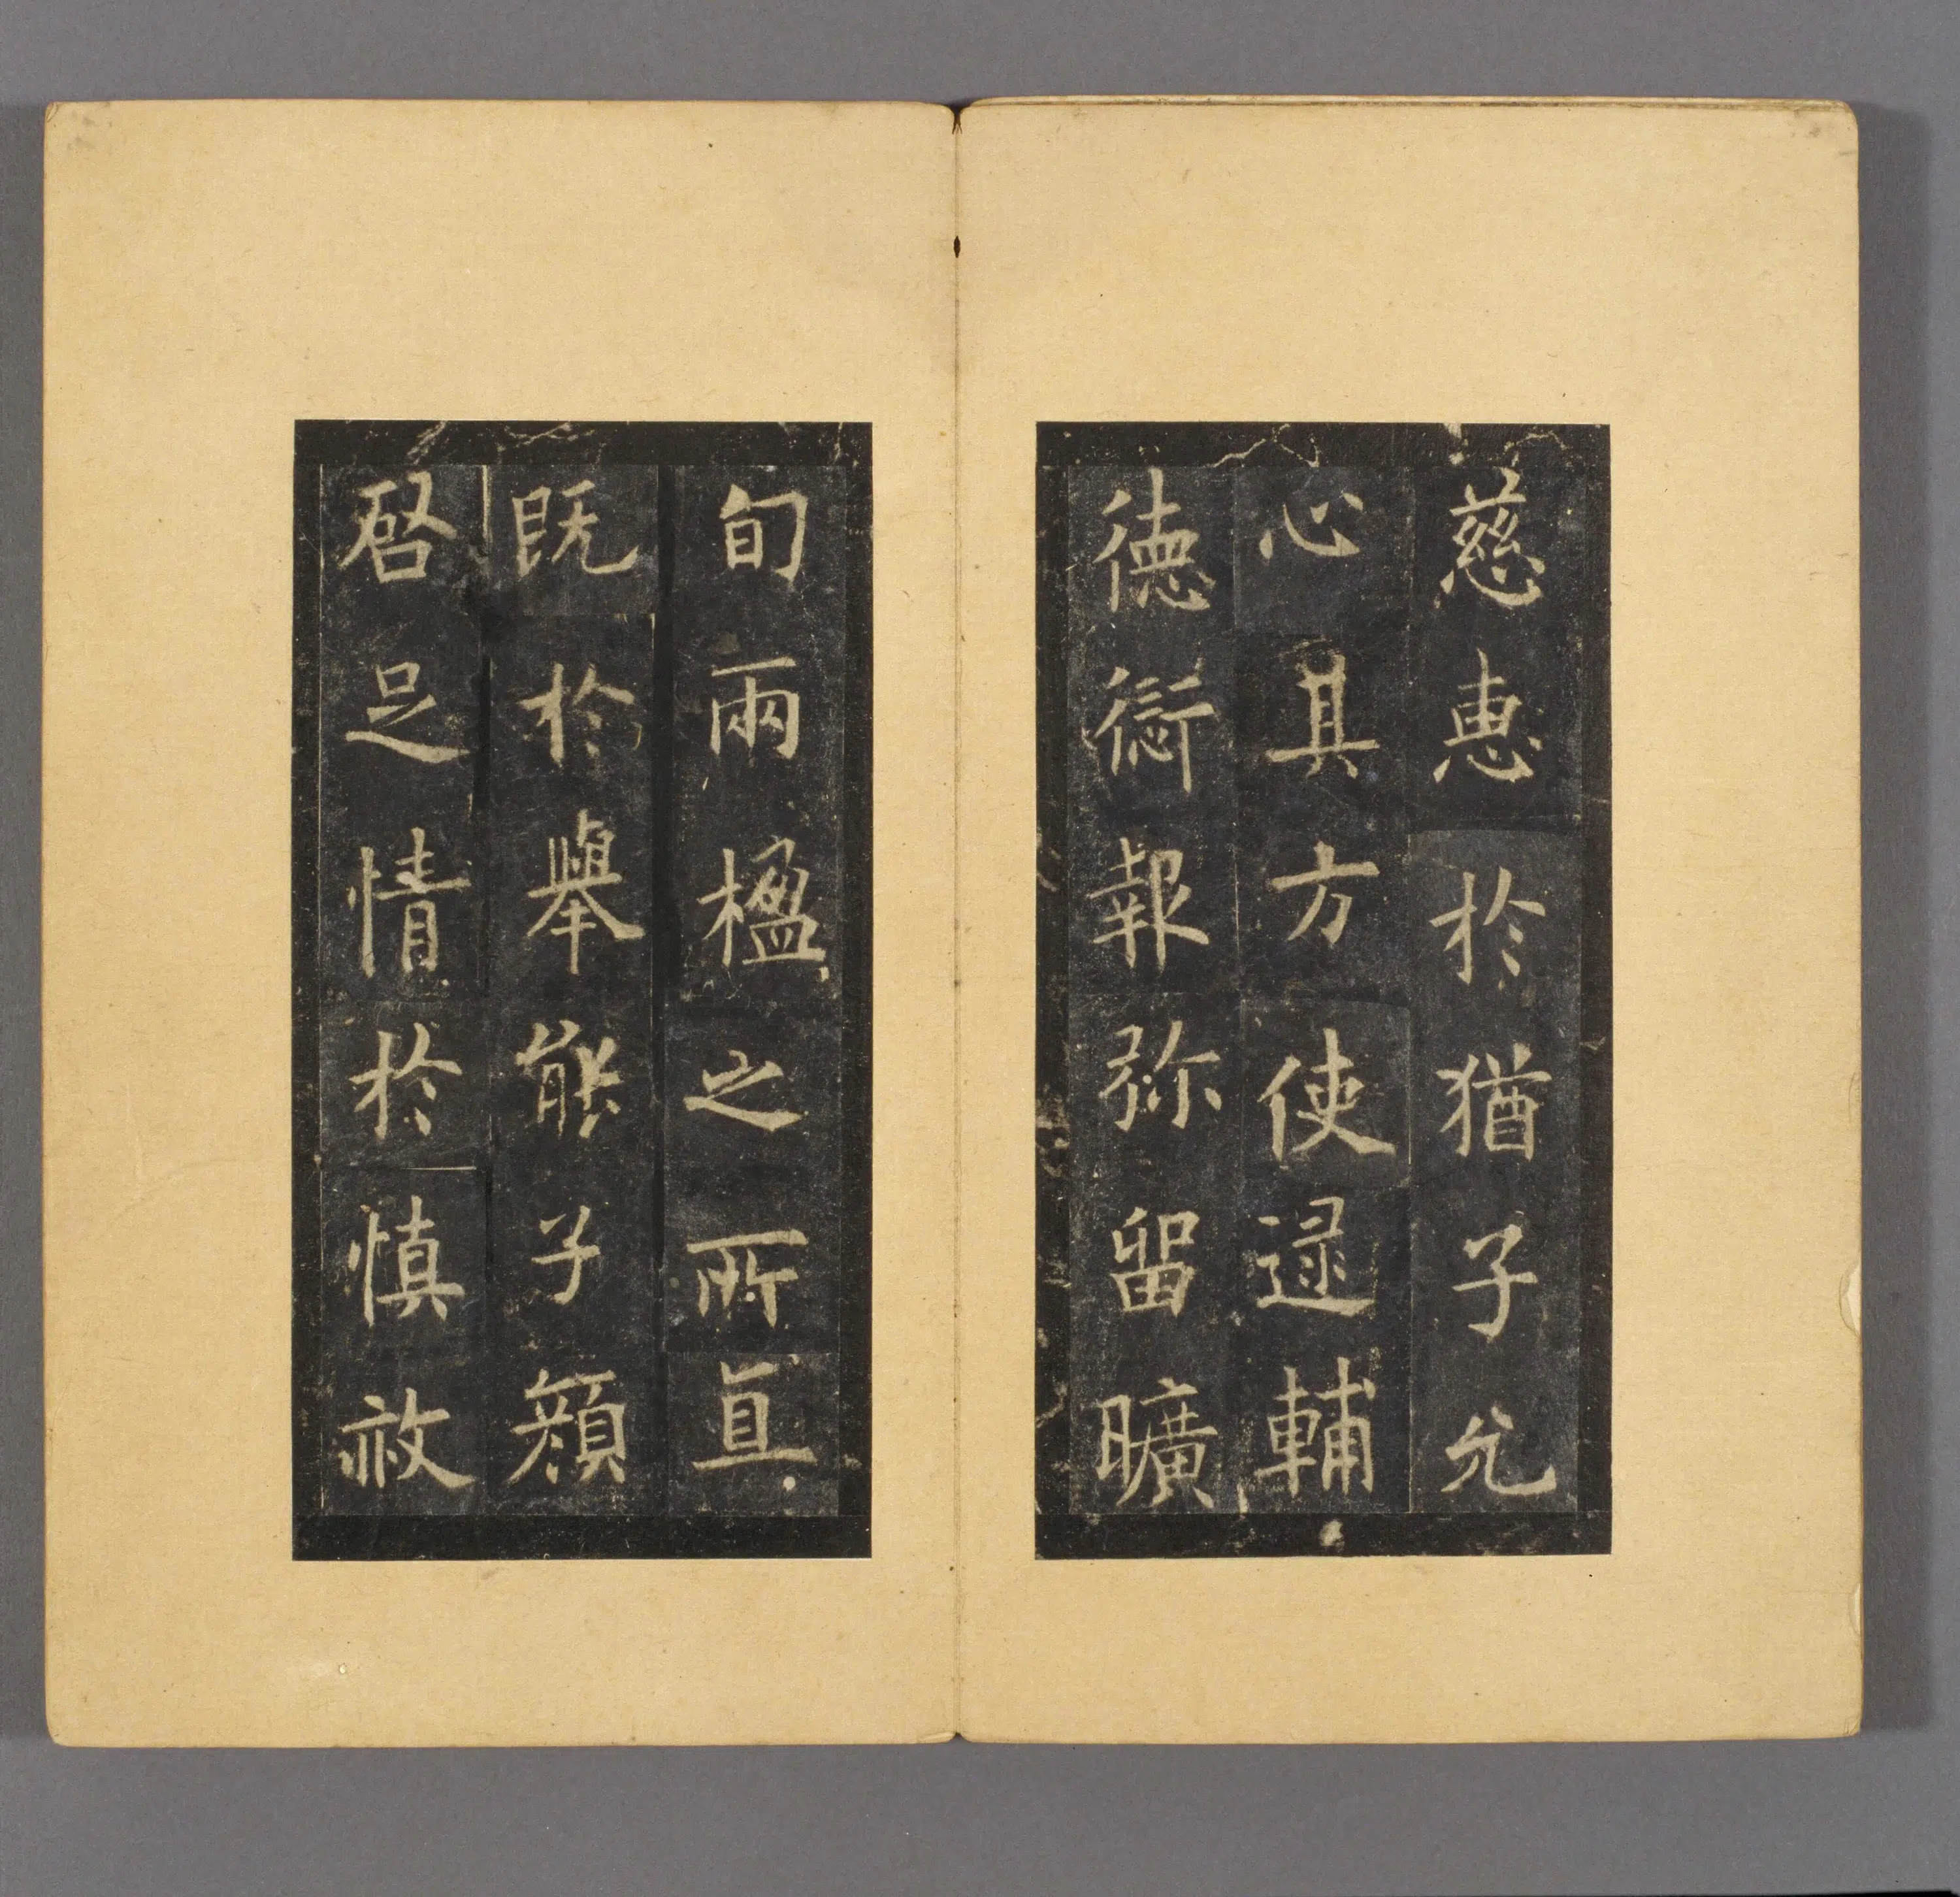 慈惠於猶子允
心具方使逯輔
德愆報弥留曠
旬兩楹之所直
既於舉能子顔
啓足情於慎赦